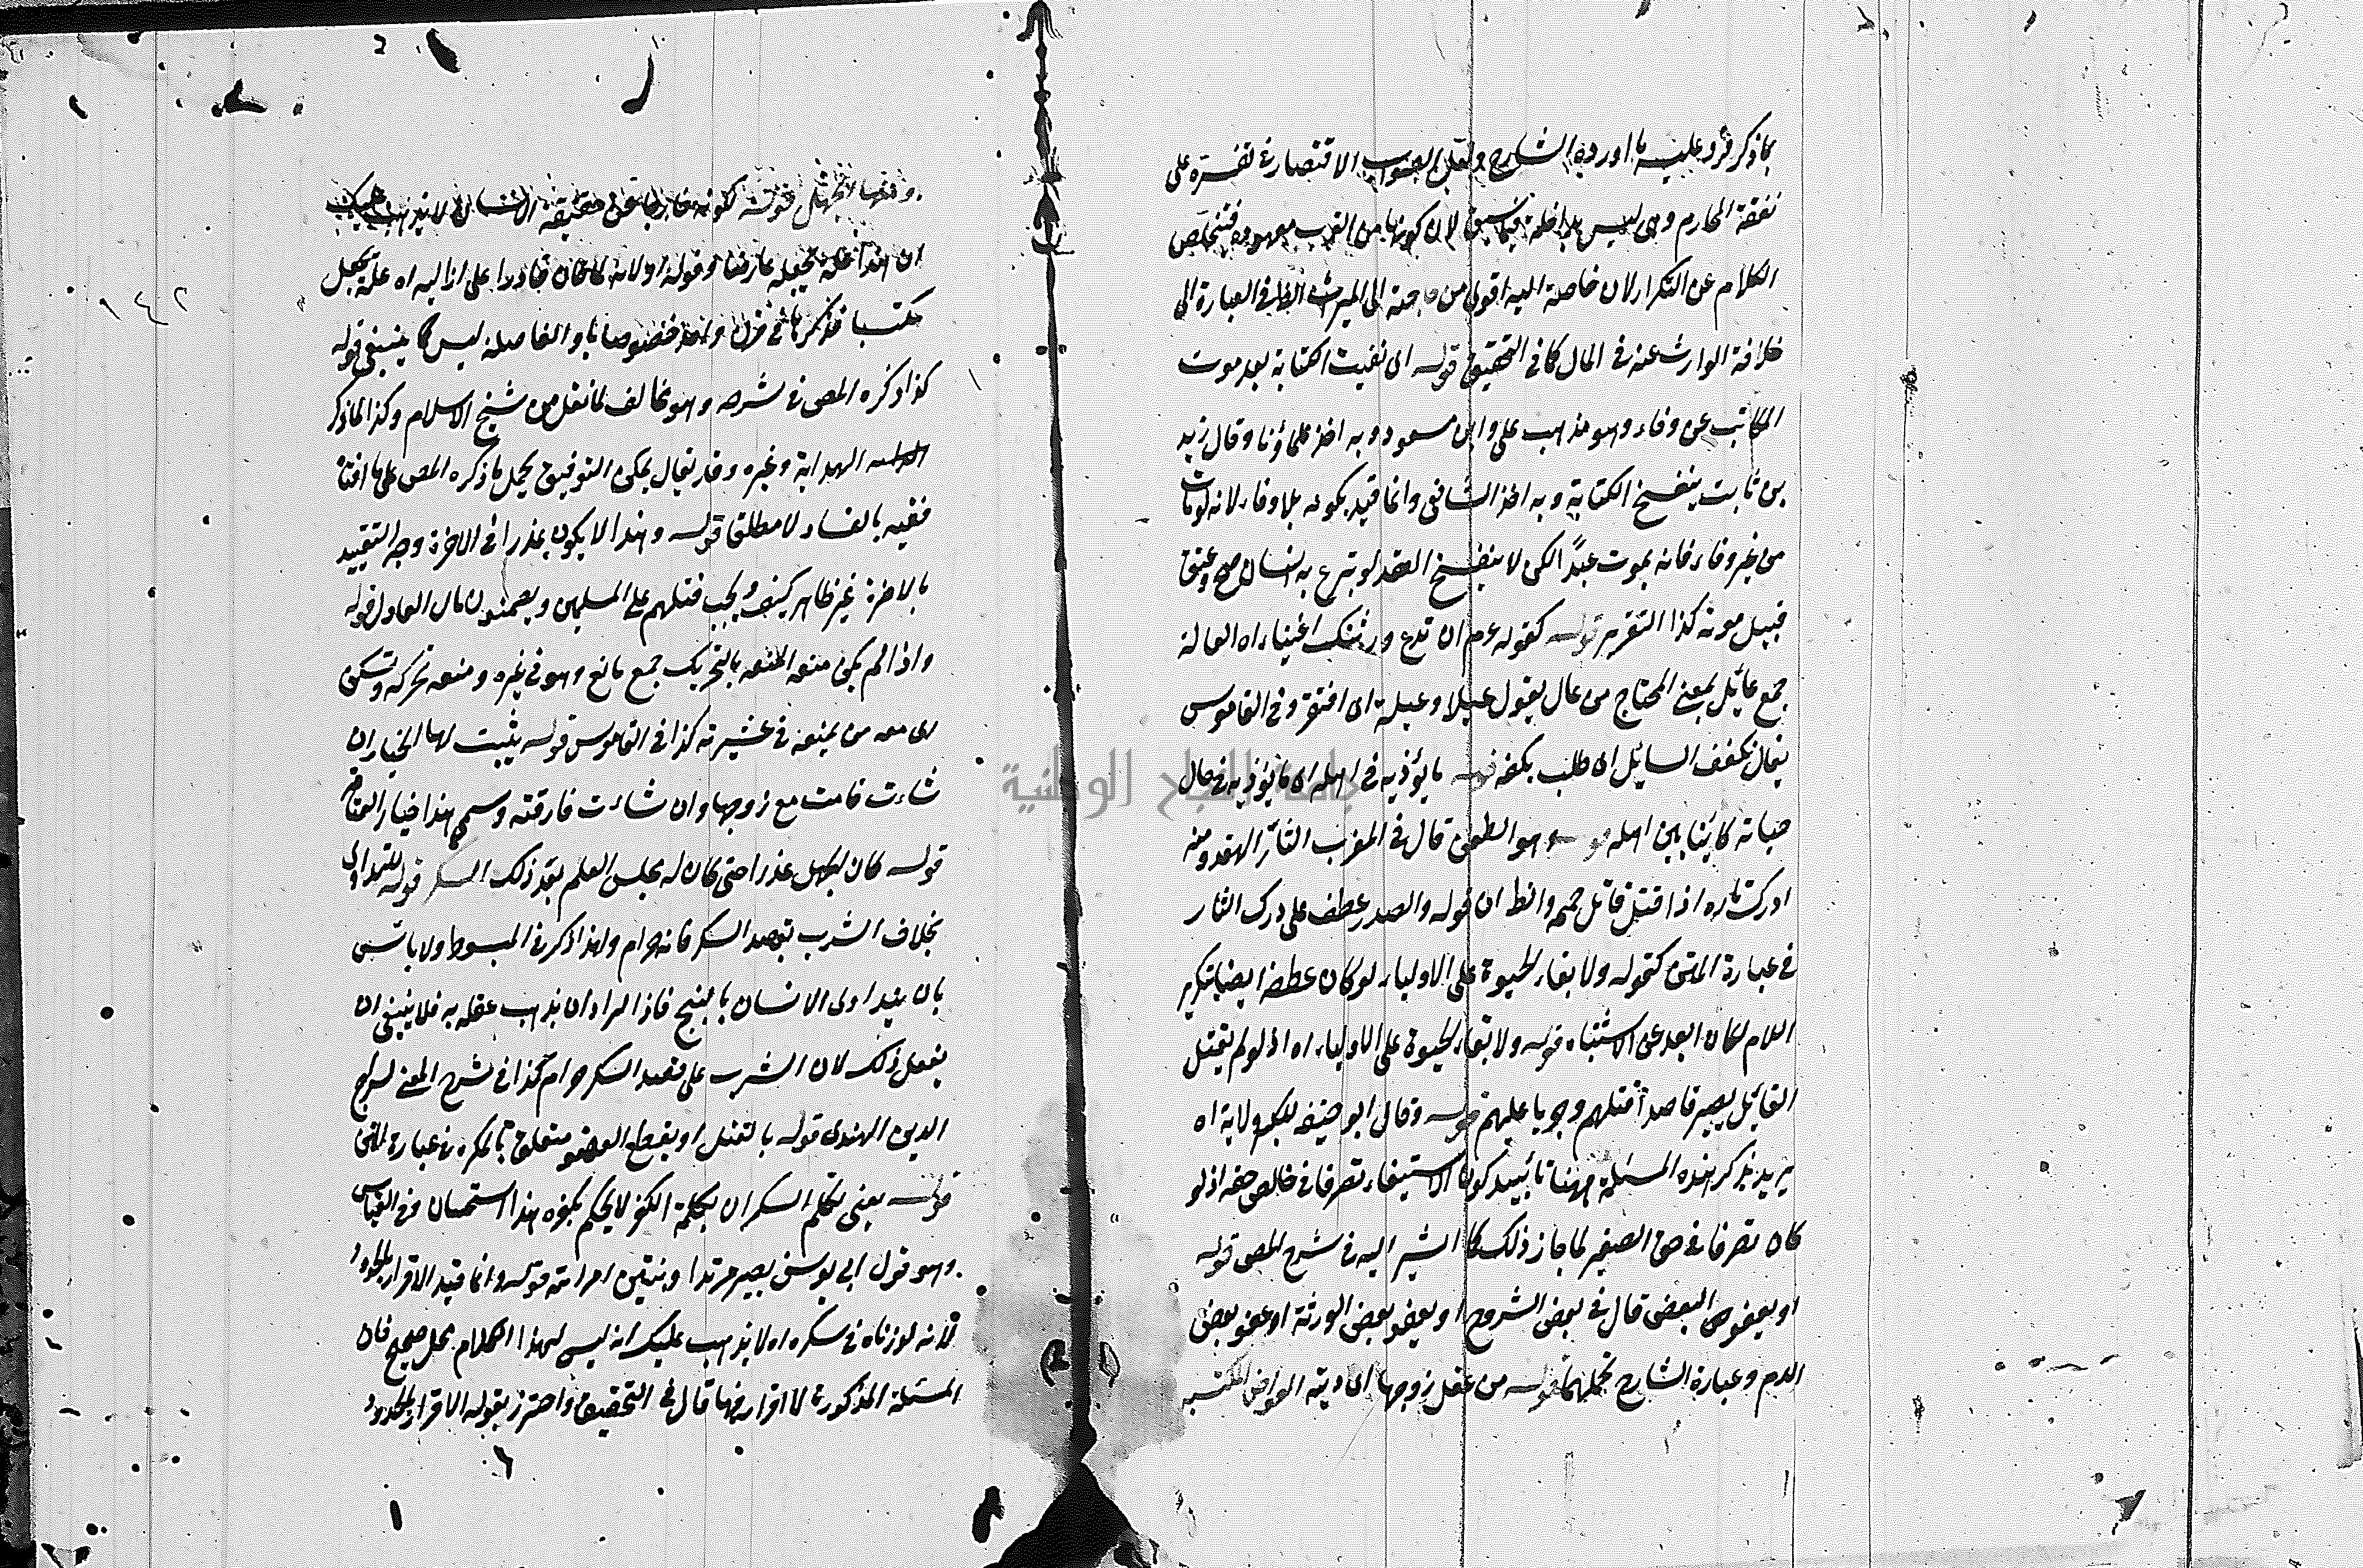 بما ذكر فرد عليه ما اورده الشارح ولعل الصواب الاقتصار في تفسيره على
نفقة المحارم وهى ليس بداخلة فيما سبق لان كونها من القرب معهودة فتخلص
الكلام عن التكرار لان خاصلة اليه اقوى من حاجته الى الميرث الظ فى العبارة الى
خلافة الوارث عنه فى المال كما فى التحقيق قوله اى نفيت الكتابة بعد موت
المكاتب عن وفاء وهو مذهب على وابن مسعود وبه اخذ علماؤنا وقال زيد
بن ثابت ينفسخ الكتابة وبه اخذ الشافى وانما قيد بكونه بلا وفاء لانه لو مات
من غير وفاء فانه يموت عبدًا لكن لا ينفسخ العقد لو تبرع به انسان صح وعتق
قبيل موته كذا التقرير قوله كقوله عم ان تدع ورثتك اغنياء اه العالة
جمع عائل بمعنى المحتاج من عال يقول عيلا وعيلة اى افتقر وفى القاموس
يقال تكفف السائل اى طلب بكفه قوله ما يؤذيه فى اهله اى ما يؤذيه فى حال
حياته كائنا بين اهله قوله وهو الطعن قال فى المغرب الثار الحقد ومنه
ادركت ثاره اذا قتل قاتل حميمه والظ ان قوله والصدر عطف على درك الثار
فى عبارة المتن كقوله ولا بقاء الحيوة على الاولياء لو كان عطفه ايضا بتكرير
اللام لكان ابعد عن الاشتباه قوله ولا بقاء الحيوة على الاولياء اه اذ لو لم يقتل
القاتل يصير قاصدا قتلهم وجوبا عليهم قوله وقال ابو حنيفه للكبير ولاية اه
يريد بذكر هذه المسئلة ههنا تأييد كون الاستيفاء تصرفا فى خالص حقه اذ لو
كان تصرفا فى حق الصغير لما جاز ذلك كما اشير اليه فى شرح المص قوله
او بعفو من البعض قال فى بعض الشروح او بعفو بعض الورثة او عفو بعض
الدم وعبارة الشارح تحملهما قوله من عقل زوجها اى ديته العوارض المكتسبه
١٤٢
ان هذا علة لجعله عارضا وقوله او لانه لما كان قادرا على ازاليه اه علة لجعل
مكتسبا فذكرهما فى قرن واحد خصوصا با والفاصلة ليس كما ينبغى قوله
كذا ذكره المص فى شرحه وهو مخالف لما نقل من شيخ الاسلام وكذا لما ذكر
الهداية وغيره وقد يقال يمكن التوفيق بحمل ما ذكره المص على ما افتاه
فقيه بالفساد لا مطلقا قوله وهذا لا يكون عذرا فى الاخرة وجه التقييد
بالاخرة غير ظاهر كيف ويجب قتلهم على المسلمين ويضمنون مال العادل قوله
واذا لم يكن منعه المنعه بالتحريك جمع مانع وهو فى غيره ومنعه تحركه وتسكن
اى معه من يمنعه فى عشيرته كذا فى القاموس قوله يثبت لها الخيار ان
شاءت قامت مع زوجها وان شاءت فارقته وسمى هذا خيار العتاقة
قوله كان الجهل عذرا حتى كان له مجلس العلم بعد ذلك السكر قوله للتداوى
بخلاف الشرب بقصد السكر فانه حرام ولهذا ذكر فى المبسوط ولا باس
بان يتداوى الانسان بالبنج فاذا اراد ان يذهب عقله به فلا ينبغى ان
يفعل ذلك لان الشرب على قصد السكر حرام كذا فى شرح المغنى لسراج
الدين الهندى قوله بالقتل او بقطع العضو متعلق بالمكره فى عبارة المتن
قوله يعنى تكلم السكران بكلمة الكفر لا يحكم بكفره هذا استحسان وفى القياس
وهو قول ابى يوسف يصير مرتدا وتبين امراته قوله وانما قيد الاقرار بالحدود
لانه لو زناه فى سكره اه لا يذهب عليك انه ليس لهذا الكلام محل صحيح فان
المسئلة المذكورة لا اقرار فيها قال فى التحقيق واحترز بقوله الاقرار بالحدود
جامعة النجاح الوطنية